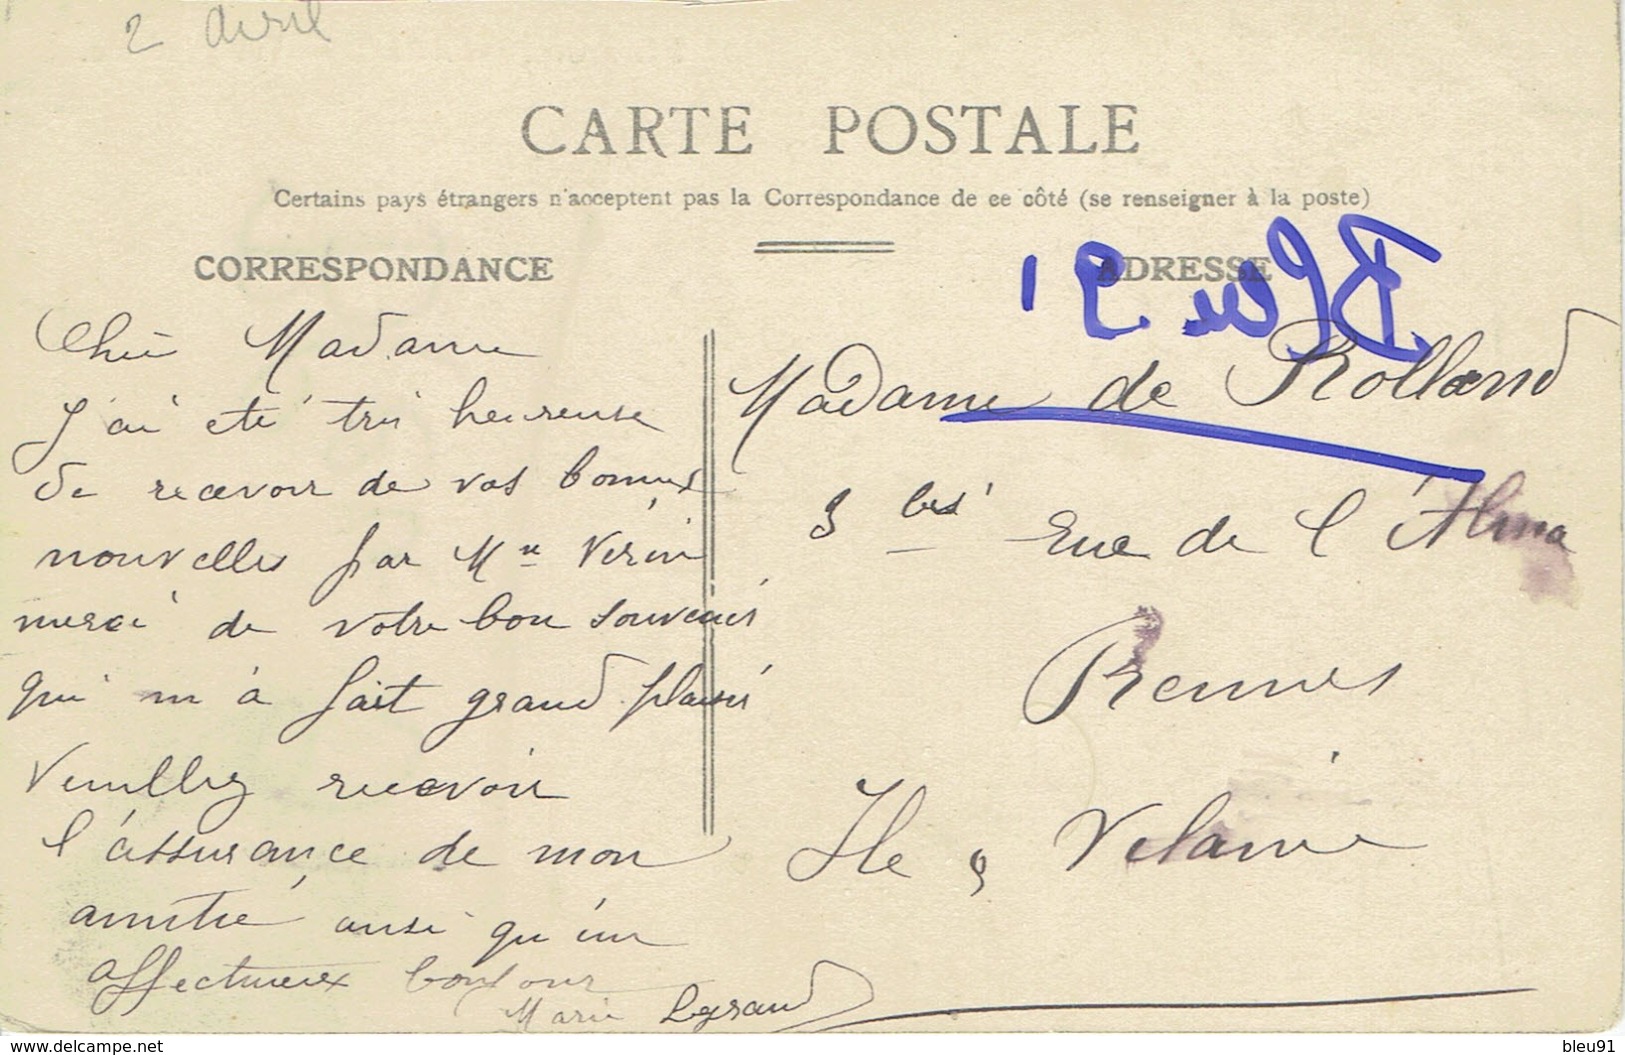 2 avril
CARTE POSTALE
Certains pays étrangers n'acceptent pas la Correspondance de ce côté (se renseigner à la poste)
CORRESPONDANCE
Chère Madame
J'ai eté très heureuse
de recevoir de vos bonnes
nouvelles par Mlle Verin
merci de votre bon souvenir
qui m'à fait grand plaisir
Veuillez recevoir
l'assurance de mon
amitié ausi qu'un
affectueux bonjour
Marie Legrand
ADRESSE
Bleu 91
Madame de Rolland
3 bis Rue de l'Alma
Rennes
Ile & Vilaine
www.delcampe.net
bleu91